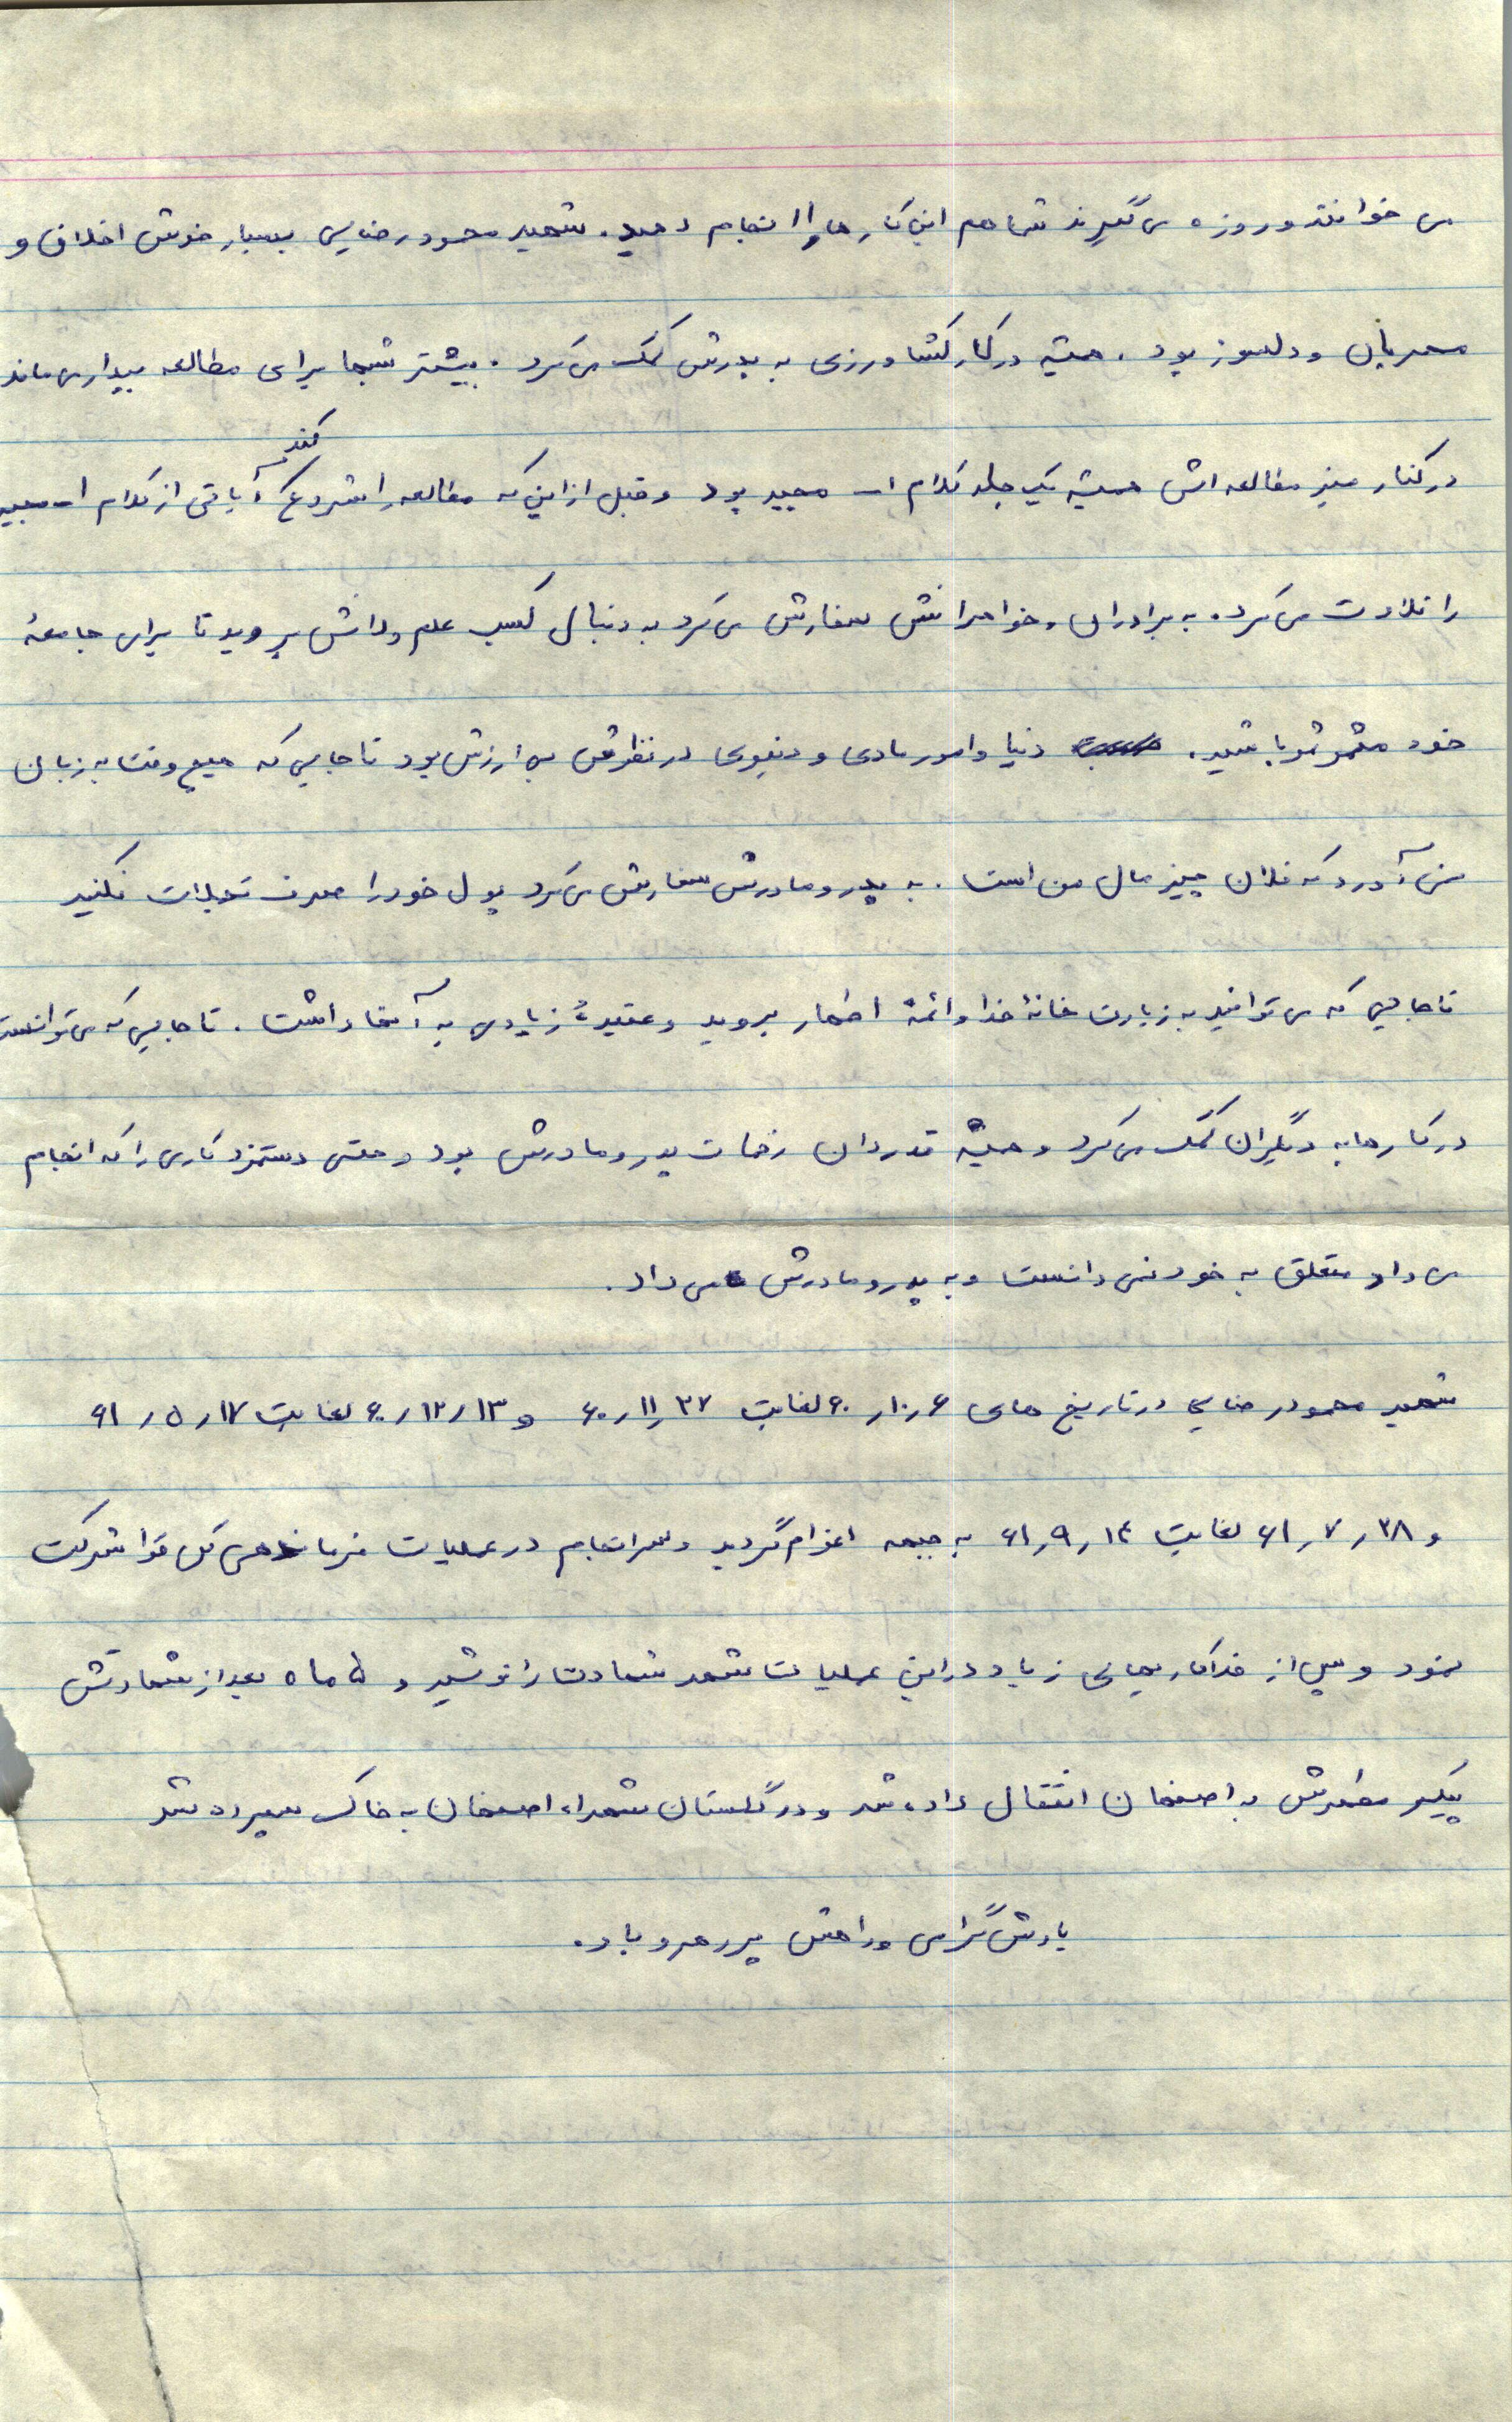 می خوانند و روزه می گیرند شما هم این کارها را انجام دهید. شهید محمود رضایی بسیار خوش اخلاق و
مهربان و دلسوز بود. همیشه در کار کشاورزی به پدرش کمک می کرد. بیشتر شبها برای مطالعه بیدار می ماند
در کنار میز مطالعه اش همیشه یک جلد کلام ا... مجید بود و قبل از این که مطالعه را شروع کند آیاتی از کلام ا... مجید
را تلاوت می کرد. به برادران و خواهرانش سفارش می کرد به دنبال کسب علم و دانش بروید تا برای جامعۀ
خود مثمر ثمر باشید. دنیا و امور مادی و دنیوی در نظرش بی ارزش بود تا جایی که هیچ وقت به زبان
نمی آورد که فلان چیز مال من است. به پدر و مادرش سفارش می کرد پول خود را صرف تجملات نکنید
تا جایی که می توانید به زیارت خانۀ خدا و ائمۀ اطهار بروید و عقیدۀ زیادی به آنها داشت. تا جایی که می توانست
در کارها به دیگران کمک می کرد و همیشه قدردان زحمات پدر و مادرش بود و حتی دستمزد کاری را که انجام
می داد متعلق به خود نمی دانست و به پدر و مادرش می داد.
شهید محمود رضایی در تاریخ های ۶۰/۱۰/۶ لغایت ۶۰/۱۱/۲۷ و ۶۰/۱۲/۱۳ لغایت ۶۱/۵/۱۷
و ۶۱/۷/۲۸ لغایت ۶۱/۹/۱۴ به جبهه اعزام گردید و سرانجام در عملیات فرماندهی کل قوا شرکت
نمود و پس از فداکاریهای زیاد در این عملیات شهد شهادت را نوشید و ۵ ماه بعد از شهادتش
پیکر مطهرش به اصفهان انتقال داده شد و در گلستان شهداء اصفهان به خاک سپرده شد
یادش گرامی و راهش پر رهرو باد.